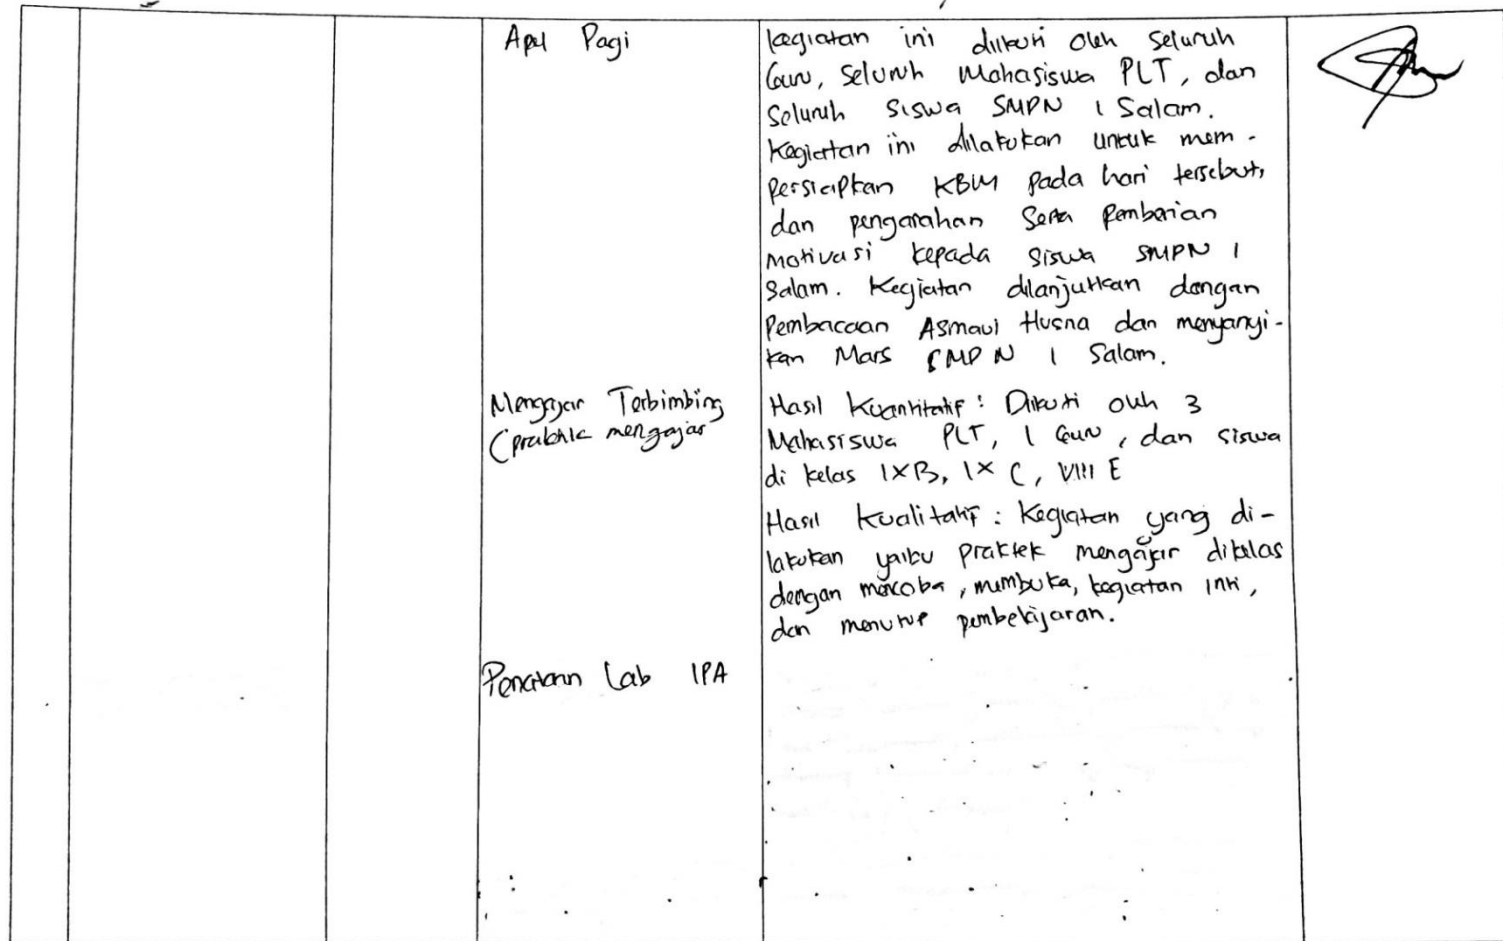 Apel Pagi
kegiatan ini diikuti oleh seluruh
Guru, seluruh Mahasiswa PLT, dan
seluruh siswa SMPN 1 Salam.
Kegiatan ini dilakukan untuk mem-
persiapkan KBM pada hari tersebut,
dan pengarahan serta pemberian
motivasi kepada siswa SMPN 1
Salam. Kegiatan dilanjutkan dengan
Pembacaan Asmaul Husna dan menyanyi-
kan Mars SMP N 1 Salam.
Mengajar Terbimbing
(praktik mengajar
Hasil Kuantitatif : Diikuti oleh 3
Mahasiswa PLT, 1 Guru, dan siswa
di kelas IXB, IX C, VIII E
Hasil Kualitatif : Kegiatan yang di-
lakukan yaitu praktek mengajar dikelas
dengan mencoba, membuka, kegiatan inti,
dan menutup pembelajaran.
Penataan Lab IPA